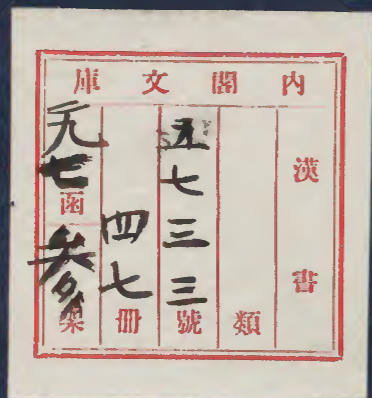 内閣文庫
漢書
類
五七三三號
四七冊
七函
參架